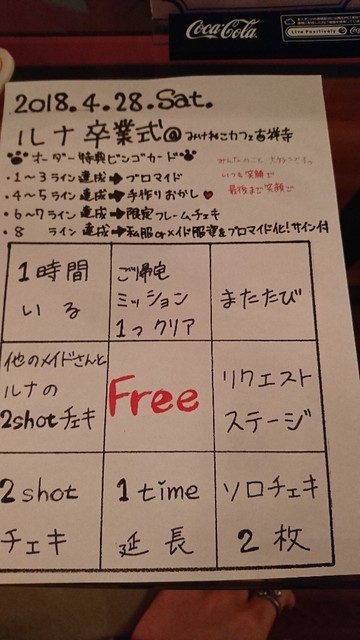 Coca-Cola
Live Positively
2018.4.28.Sat.
ルナ 卒業式@みけねこカフェ吉祥寺
オーダー特典ビンゴカード
みんなのこと、大好きです。
いつも笑顔で
最後まで笑顔で
・1〜3ライン達成➡ブロマイド
・4〜5ライン達成➡手作りおかし♥
・6〜7ライン達成➡限定フレームチェキ
・8 ライン達成➡私服orメイド服姿をブロマイド化!サイン付
1時間
いる
ご帰宅
ミッション
1つクリア
またたび
他のメイドさんと
ルナの
2shotチェキ
Free
リクエスト
ステージ
2shot
チェキ
1time
延長
ソロチェキ
2枚